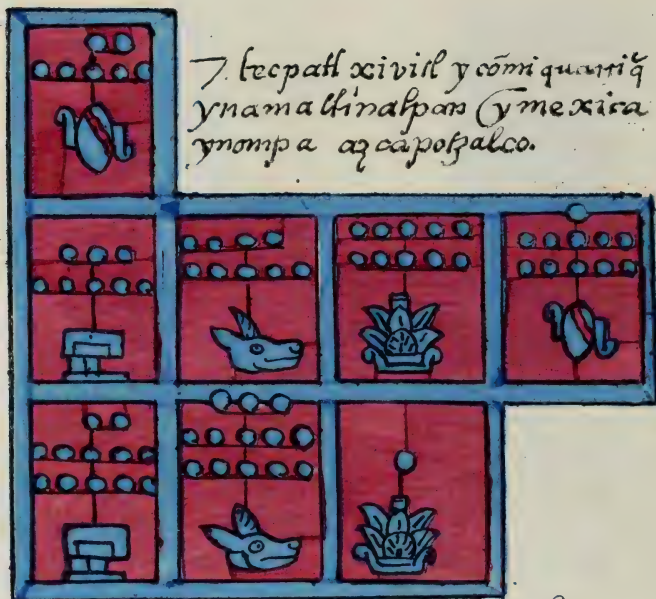 7. tecpatl xivitl y cōmi quaniq̃
ynamaltinalpan Cymexica
ynompa azcapotzalco.